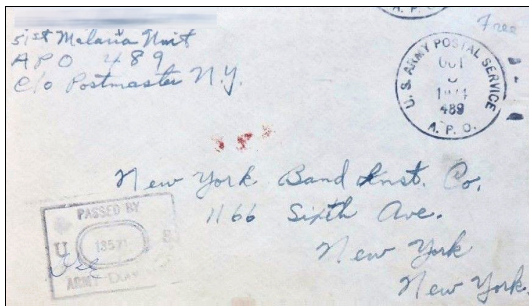 51st Malaria Unit
APO 489
c/o Postmaster N.Y.
Free
A. P. O.
U. S. ARMY POSTAL SERVICE
OCT
489
A. P. O.
New York Band Inst. Co.
1166 Sixth Ave.
New York
New York.
PASSED BY
U
ARMY